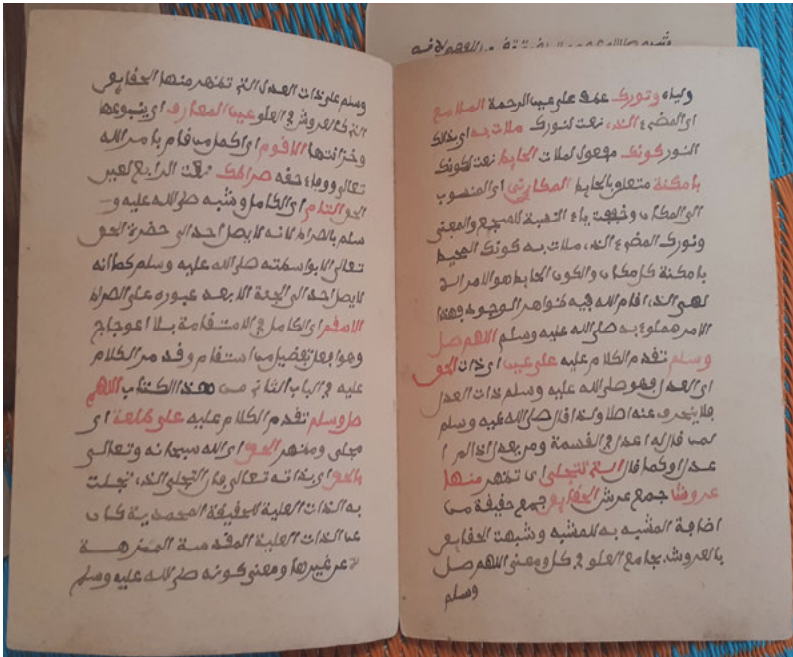 ولياء ونورك عطف على عين الرحمة اللامع
اي المضيء الذي نعت لنورك ملات به اي بذلك
النور كونك مفعول لملات الحايط نعت لكونك
بامكنة متعلق بالحايط المكاني اي المنسوب
الى المكان وخففت ياء النسبة للسجع والمعنى
ونورك المضيء الذي ملات به كونك المحيط
بامكنة كل مكان والكون الحايط هو الامر الا
لهي الذي اقام الله فيه ظواهر الوجود فهذا
الامر مملوء به صلى الله عليه وسلم اللهم صل
وسلم تقدم الكلام عليه على عين اي ذات الحق
اي العدل فهو صلى الله عليه وسلم ذات العدل
فلا ينحرف عنه اصلا ولذا قال صلى الله عليه وسلم
لمن قال له اعدل في القسمة ومن يعدل اذا لم ا
عدل او كما قال التي تتجلى اي تظهر منها
عروش جمع عرش الحقايق جمع حقيقة من
اضافة المشبه به للمشبه وشبهت الحقايق
بالعروش بجامع العلو في كل ومعنى اللهم صل
وسلم
وسلم على ذات العدل التي تظهر منها الحقايق
التي كالعروش في العلو عين المعارف اي ينبوعها
وخزانتها الاقوم اي اكمل من قام بامر الله
تعالى ووفاء حقه صراطك نعت الرابع لعين
الحق التام اي الكامل وشبه صلى الله عليه و
سلم بالصراط لانه لا يصل احد الى حضرة الحق
تعالى الا بواسطته صلى الله عليه وسلم كما انه
لا يصل احد الى الجنة الا بعد عبوره على الصراط
الاسقم اي الكامل في الاستقامة بلا اعوجاج
وهو افعل تفضيل من استقام وقد مر الكلام
عليه في الباب الثاني من هذا الكتاب اللهم
صل وسلم تقدم الكلام عليه على طلعة اي
مجلى ومظهر الحق اي الله سبحانه وتعالى
بالحق اي بذاته تعالى فان التجلي الذي تجلت
به الذات العلية للحقيقة المحمدية كان
عن الذات العلية المقدسة المنزهة
لا عن غيرها ومعنى كونه صلى الله عليه وسلم